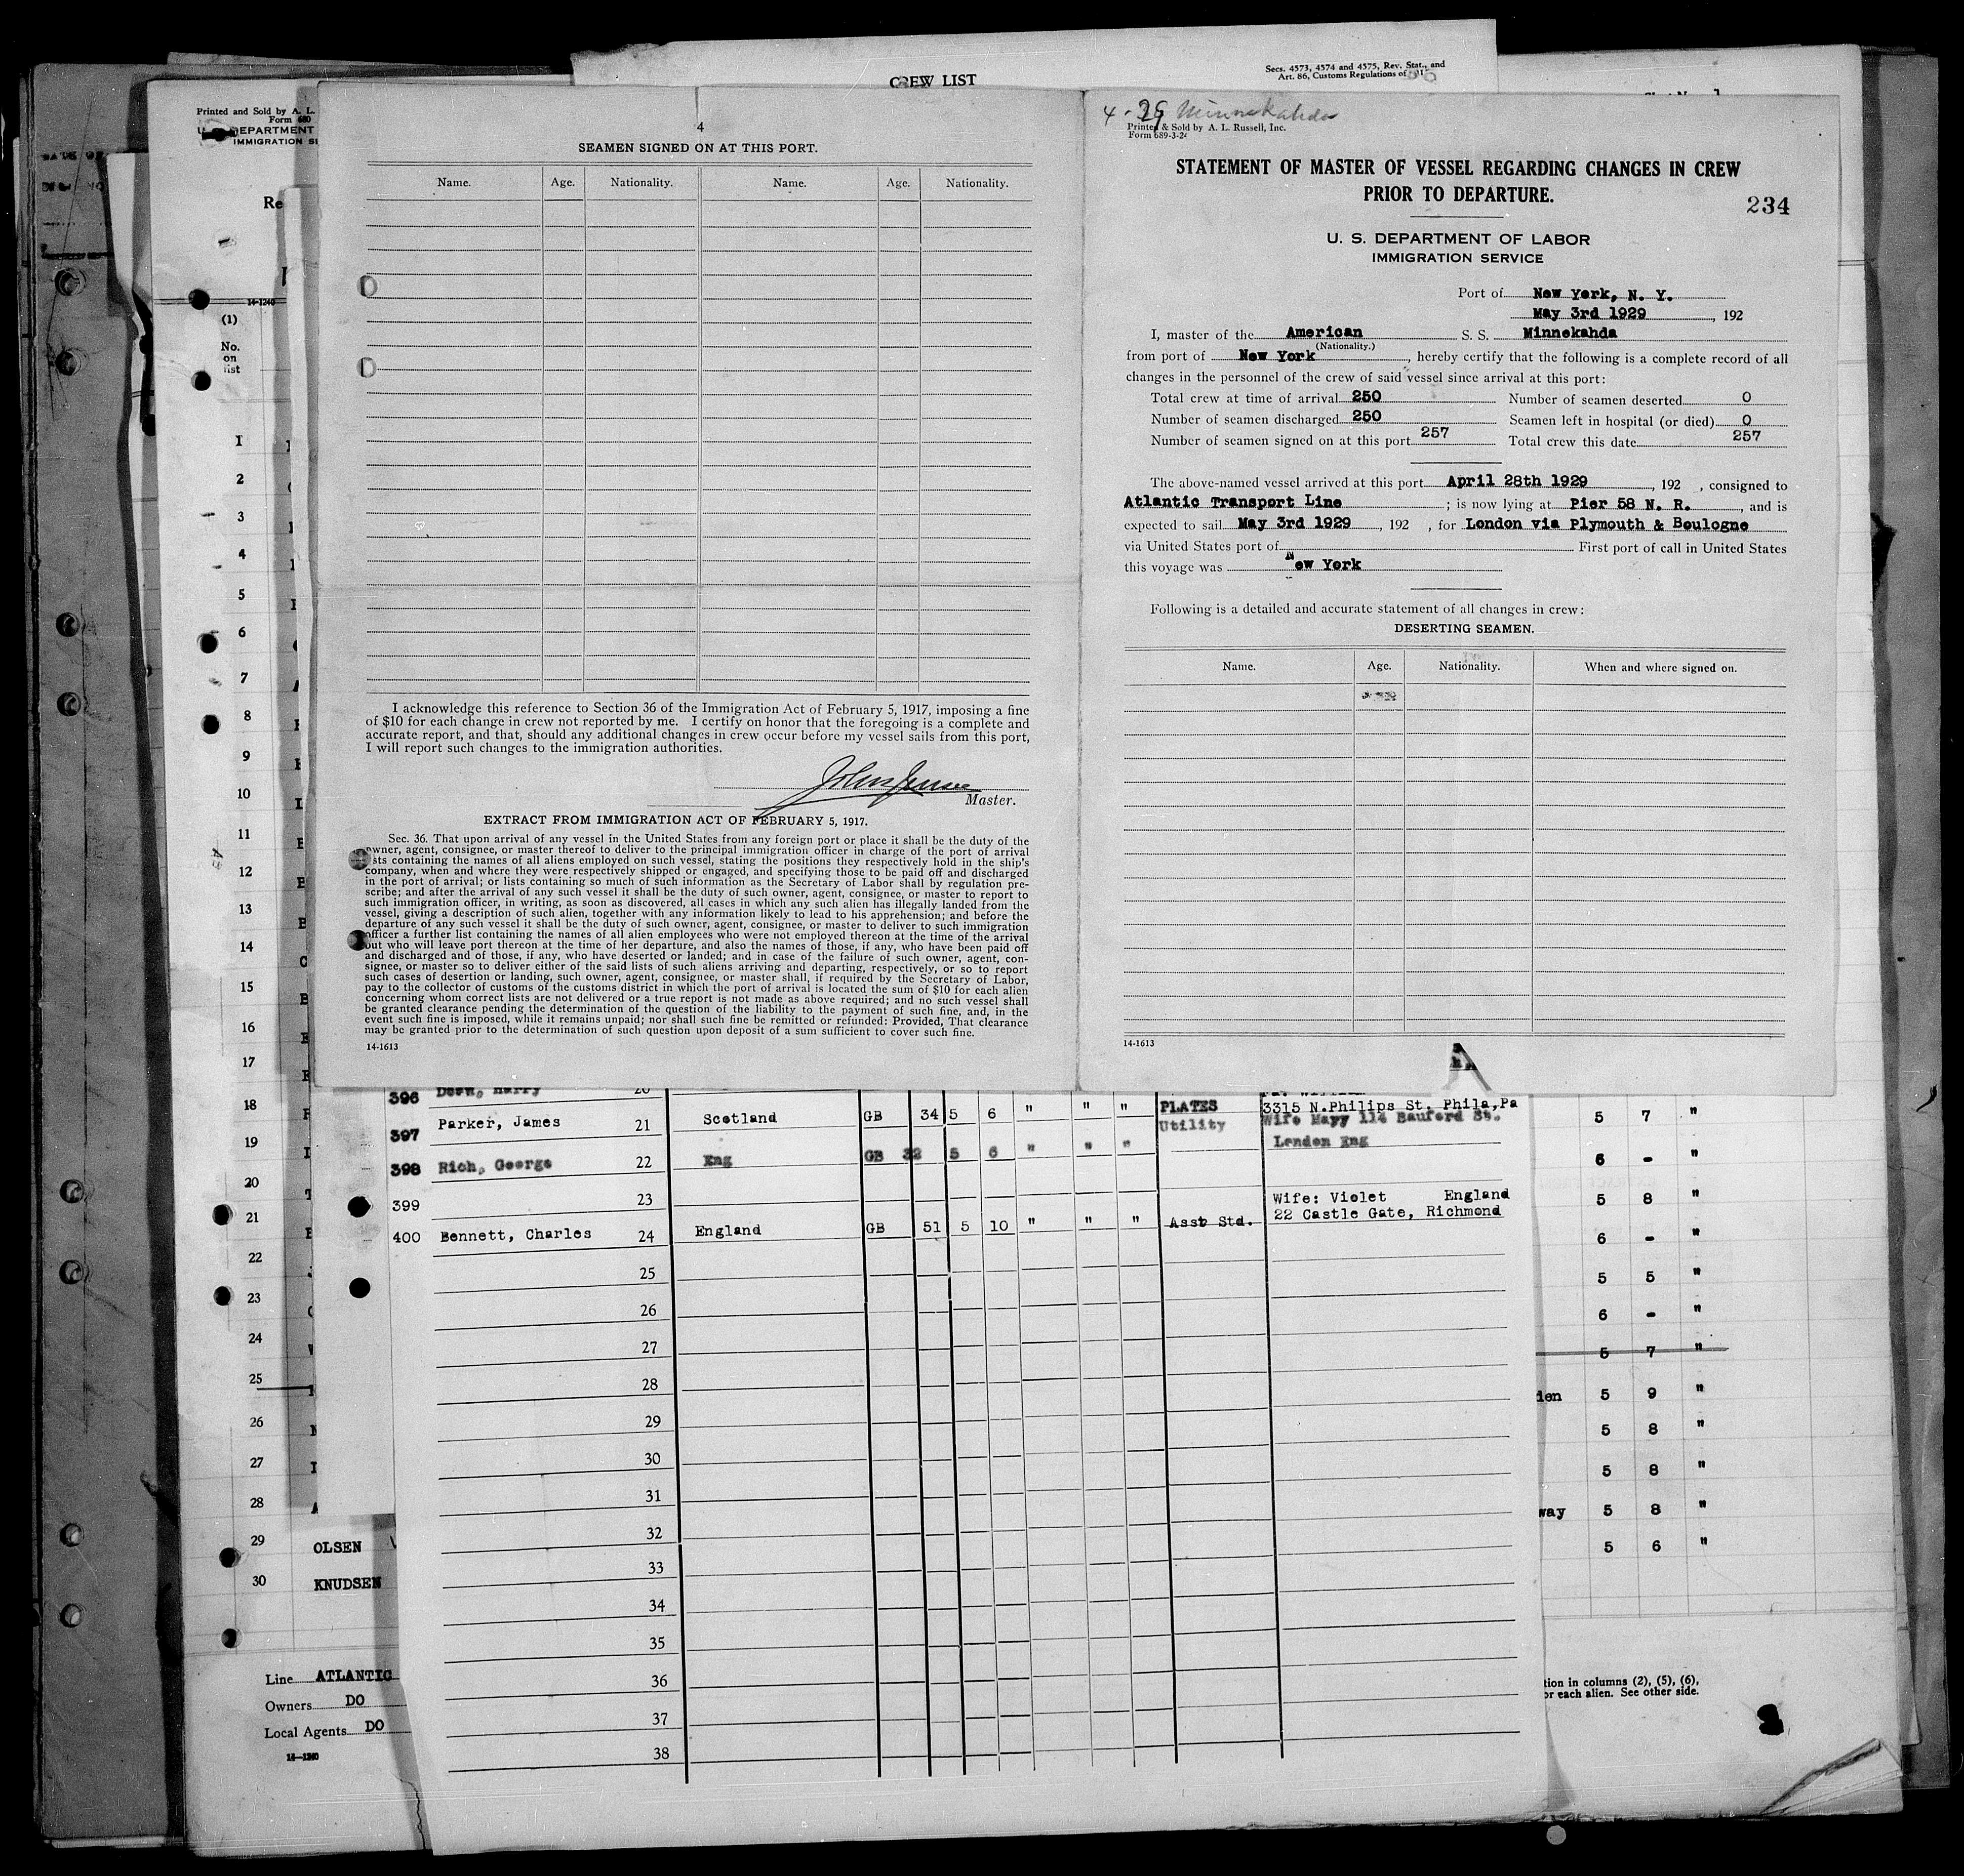 CREW LIST
Secs. 4573, 4574 and 4575, Rev. Stat., and
Art. 86, Customs Regulations of
Printed and Sold by A. L.
Form 680
DEPARTMENT
IMMIGRATION
14-1240
(1)
No.
on
list
4
SEAMEN SIGNED ON AT THIS PORT.
Name. Age. Nationality. Name. Age. Nationality.
I acknowledge this reference to Section 36 of the Immigration Act of February 5, 1917, imposing a fine
of $10 for each change in crew not reported by me. I certify on honor that the foregoing is a complete and
accurate report, and that, should any additional changes in crew occur before my vessel sails from this port,
I will report such changes to the immigration authorities.
John Jensen
Master.
EXTRACT FROM IMMIGRATION ACT OF FEBRUARY 5, 1917.
Sec. 36. That upon arrival of any vessel in the United States from any foreign port or place it shall be the duty of the
owner, agent, consignee, or master thereof to deliver to the principal immigration officer in charge of the port of arrival
sts containing the names of all aliens employed on such vessel, stating the positions they respectively hold in the ship's
company, when and where they were respectively shipped or engaged, and specifying those to be paid off and discharged
in the port of arrival; or lists containing so much of such information as the Secretary of Labor shall by regulation pre-
scribe; and after the arrival of any such vessel it shall be the duty of such owner, agent, consignee, or master to report to
such immigration officer, in writing, as soon as discovered, all cases in which any such alien has illegally landed from the
vessel, giving a description of such alien, together with any information likely to lead to his apprehension; and before the
departure of any such vessel it shall be the duty of such owner, agent, consignee, or master to deliver to such immigration
officer a further list containing the names of all alien employees who were not employed thereon at the time of the arrival
but who will leave port thereon at the time of her departure, and also the names of those, if any, who have been paid off
and discharged and of those, if any, who have deserted or landed; and in case of the failure of such owner, agent, con-
signee, or master so to deliver either of the said lists of such aliens arriving and departing, respectively, or so to report
such cases of desertion or landing, such owner, agent, consignee, or master shall, if required by the Secretary of Labor,
pay to the collector of customs of the customs district in which the port of arrival is located the sum of $10 for each alien
concerning whom correct lists are not delivered or a true report is not made as above required; and no such vessel shall
be granted clearance pending the determination of the question of the liability to the payment of such fine, and, in the
event such fine is imposed, while it remains unpaid; nor shall such fine be remitted or refunded: Provided, That clearance
may be granted prior to the determination of such question upon deposit of a sum sufficient to cover such fine.
14-1613
4-29 Minnekahda
Printed & Sold by A. L. Russell, Inc.
Form 689-3-2
STATEMENT OF MASTER OF VESSEL REGARDING CHANGES IN CREW
PRIOR TO DEPARTURE.
234
U. S. DEPARTMENT OF LABOR
IMMIGRATION SERVICE
Port of New York, N. Y.
May 3rd 1929, 192
I, master of the American S. S. Minnekahda
(Nationality.)
from port of New York, hereby certify that the following is a complete record of all
changes in the personnel of the crew of said vessel since arrival at this port:
Total crew at time of arrival 250 Number of seamen deserted 0
Number of seamen discharged 250 Seamen left in hospital (or died) 0
Number of seamen signed on at this port 257 Total crew this date 257
The above-named vessel arrived at this port April 28th 1929, 192 , consigned to
Atlantic Transport Line ; is now lying at Pier 58 N. R., and is
expected to sail May 3rd 1929, 192 , for London via Plymouth & Boulogne
via United States port of First port of call in United States
this voyage was New York
Following is a detailed and accurate statement of all changes in crew:
DESERTING SEAMEN.
Name. Age. Nationality. When and where signed on.
14-1613
396 Harry 20
PLATES 3315 N.Philips St. Phila,Pa
397 Parker, James 21 Scotland GB 34 5 6 " " " Utility Wife
398 Rich, George 22 Eng GB 32 5 6 " " " London Eng
399 23
Wife: Violet England
400 Bennett, Charles 24 England GB 51 5 10 " " " Asst Std. 22 Castle Gate, Richmond
25
26
27
28
29
30
31
32
33
34
35
36
37
38
1
2
3
4
5
6
7
8
9
10
11
12
13
14
15
16
17
18
19
20
21
22
23
24
25
26
27
28
29 OLSEN
30 KNUDSEN
Line ATLANTIC
Owners DO
Local Agents DO
14-1240
5 7 "
6 - "
5 8 "
6 - "
5 5 "
6 - "
5 7 "
5 9 "
5 8 "
5 8 "
way 5 8 "
5 6 "
tion in columns (2), (5), (6),
or each alien. See other side.